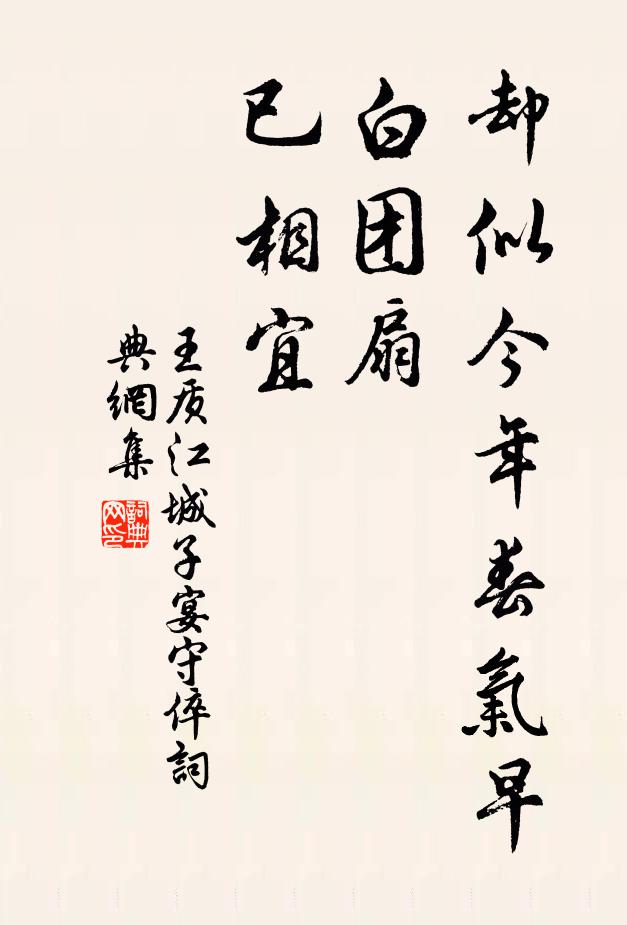 却似今年春氣早
白团扇
已相宜
王质江城子宴守倅詞
典網集
詞典网印